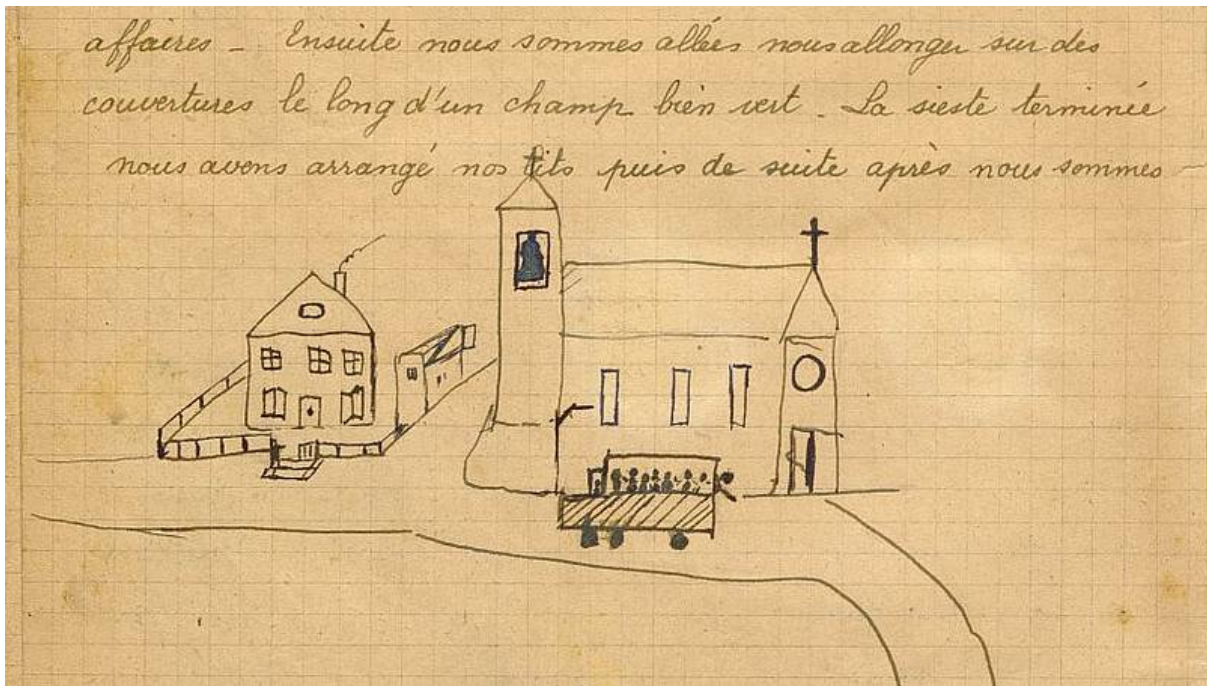 affaires _ Ensuite nous sommes allées nous allonger sur des
couvertures le long d'un champ bien vert. La sieste terminée
nous avons arrangé nos lits puis de suite après nous sommes